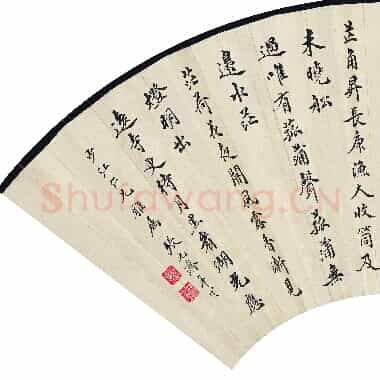 芒角昇長庚漁人收筒及
未曉船
過唯有菰蒲聲菰蒲無
邊水茫
茫荷花夜開風露香漸見
燈明出
遠寺更待月黑看湖光
仁兄雅屬
Shufawang.CN